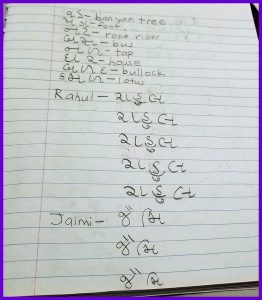 વડ - banyan tree
પગ - foot
નટ - rope rider
બસ - bus
નળ - tap
ઘર - house
બળદ - bullock
કમળ - lotus
Rahul - રાહુલ
રાહુલ
રાહુલ
રાહુલ
રાહુલ
Jaimi - જૈમિ
જૈમિ
જૈમિ